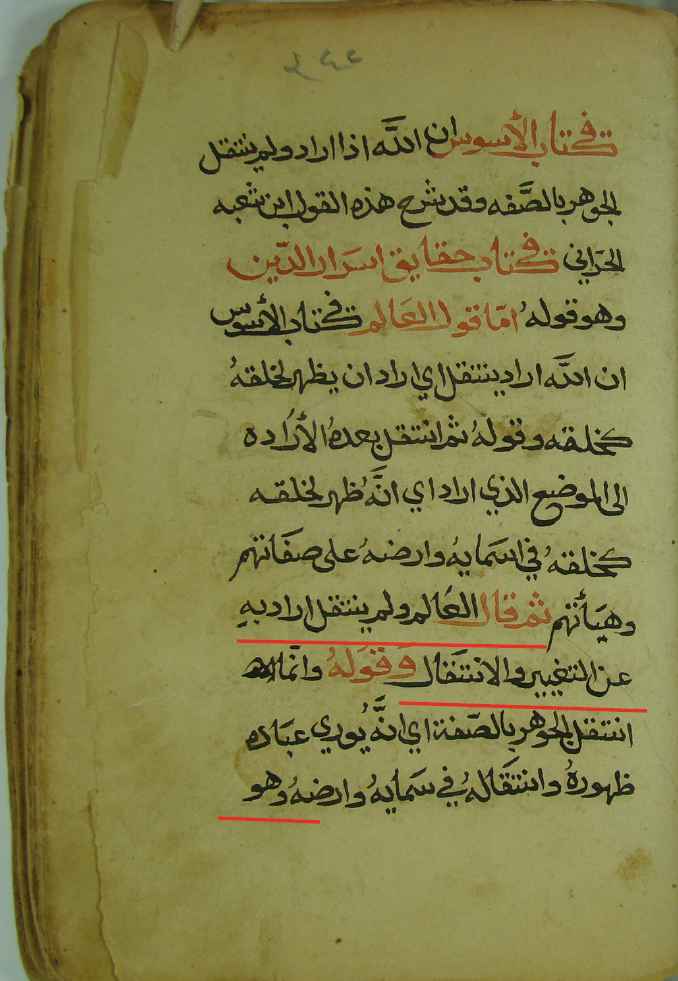 في كتاب الأسوس ان الله اذا اراد ولم ينتقل
الجوهر بالصّفه وقد شرح هذه القول ابن شعبه
الحرّاني في كتاب حقايق اسرار الدّين
وهو قولهُ امّا قول العَالم في كتاب الأسوس
ان الله اراد ينتقل اي اراد ان يظهر لخلقهُ
كخلقه وقولهُ ثم انتقل بعدهُ الأراده
الى الموضع الذي اراد اي انَّهُ ظهر لخلقه
كخلقهُ في اسمايهُ وارضهُ على صفَاتهم
وهيَأتهم ثم قال العَالم ولم ينتقل اراد بهِ
عن التغيير والانتقَال وَقَولهُ وانّما
انتقل الجوهر بالصّفة اي انَّهُ يوري عبَاده
ظهورهُ وانتقَالهُ في سمَايهُ وارضهُ وهو